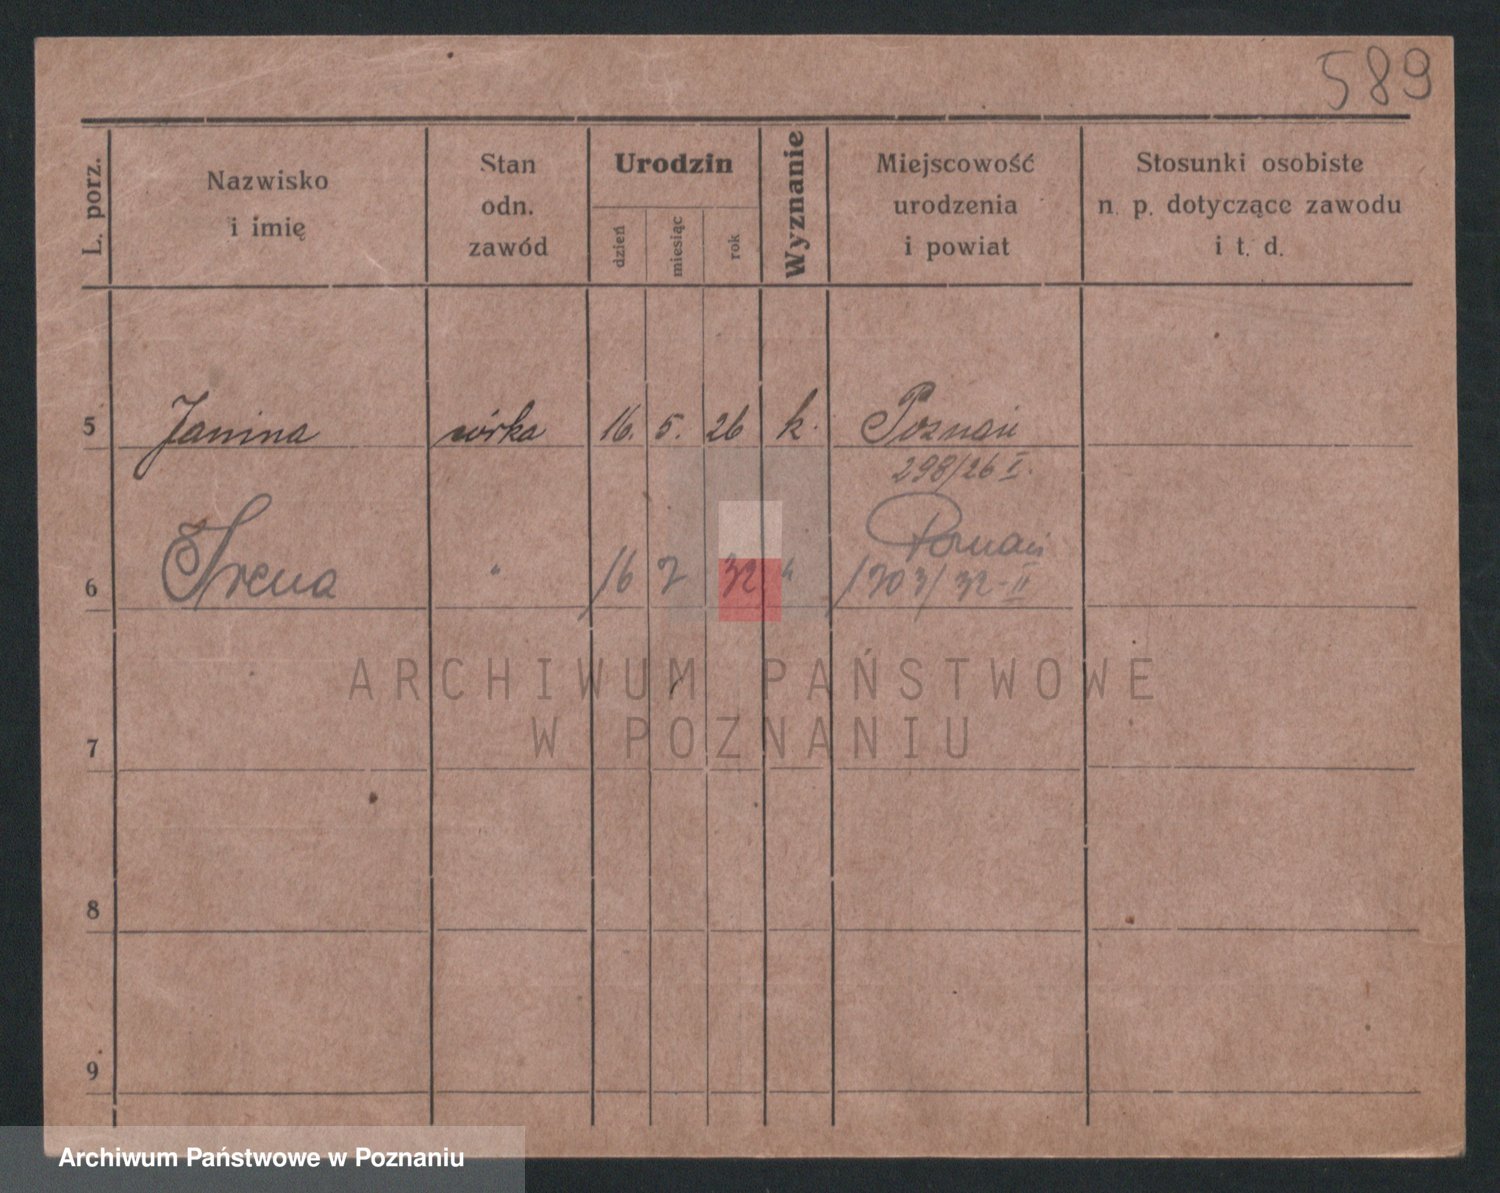 589
L. porz.
Nazwisko
i imię
Stan
odn.
zawód
Urodzin
dzień
miesiąc
rok
Wyznanie
Miejscowość
urodzenia
i powiat
Stosunki osobiste
n. p. dotyczące zawodu
i t. d.
5 Janina córka 16. 5. 26 k. Poznań
298/26 I.
Poznań
6 Irena " 16 7 32 " 1703/32-II
ARCHIWUM PAŃSTWOWE
W POZNANIU
7
8
9
Archiwum Państwowe w Poznaniu